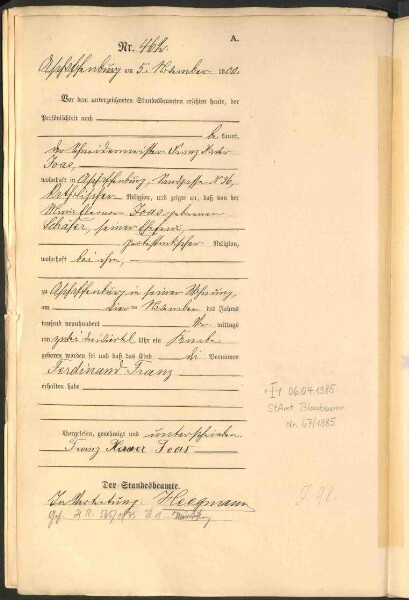 A.
Nr. 462.
Aschaffenburg am 5. November 1900.
Vor dem unterzeichneten Standesbeamten erschien heute, der
Persönlichkeit nach
be kannt,
der Schneidermeister Franz Xaver
Joas,
wohnhaft in Aschaffenburg, Sandgasse N 36,
katholischer Religion, und zeigte an, daß von der
Joas geborenen
Schäfer, seiner Ehefrau,
protestantischer Religion,
wohnhaft bei ihm,
zu Aschaffenburg in seiner Wohnung
am vier November des Jahres
tausend neunhundert Vor mittags
um Uhr ein Knabe
geboren worden sei und daß das Kind die Vornamen
Ferdinand Franz
erhalten habe
Vorgelesen, genehmigt und unterschrieben.
Franz Xaver Joas
Der Standesbeamte.
In Vertretung: Heegmann
06.04.1985
StAmt Blaubeuren
Nr. 67/1985